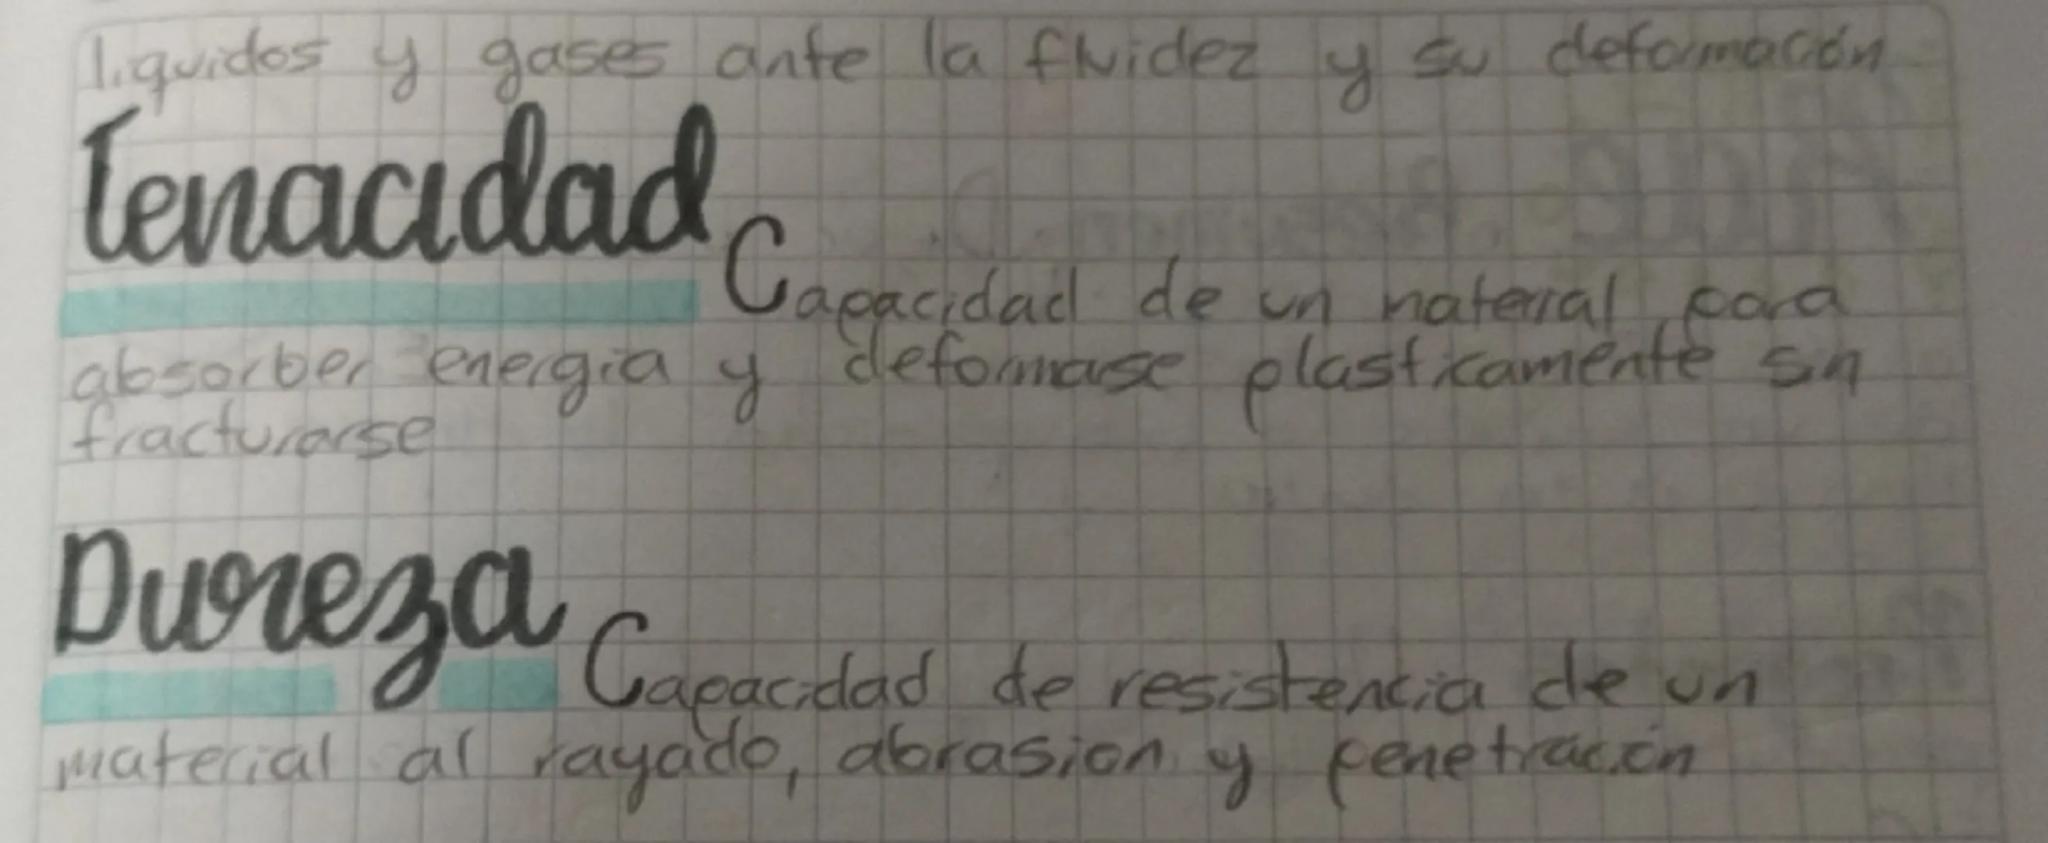 liquidos y gases ante la fluidez y su deformación
Tenacidad
Capacidad de un material para
absorber energia y deformarse plasticamente sin
fracturarse
Dureza
Capacidad de resistencia de un
material al rayado, abrasion y penetración